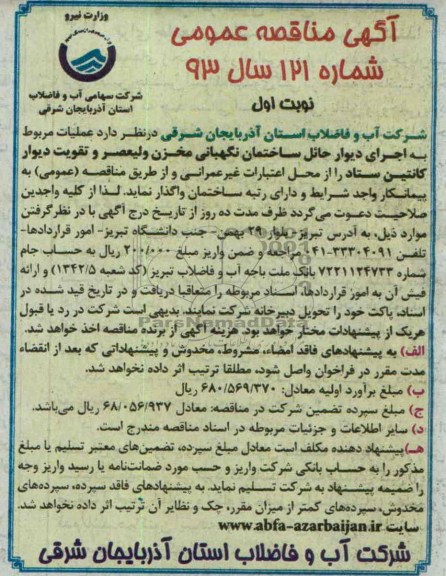 وزارت نیرو
شرکت سهامی آب و فاضلاب
استان آذربایجان شرقی
آگهی مناقصه عمومی
شماره ۱۲۱ سال ۹۳
نوبت اول
شرکت آب و فاضلاب استان آذربایجان شرقی درنظر دارد عملیات مربوط
به اجرای دیوار حائل ساختمان نگهبانی مخزن ولیعصر و تقویت دیوار
کانتین ستاد را از محل اعتبارات غیرعمرانی و از طریق مناقصه (عمومی) به
پیمانکار واجد شرایط و دارای رتبه ساختمان واگذار نماید. لذا از کلیه واجدین
صلاحیت دعوت می‌گردد ظرف مدت ده روز از تاریخ درج آگهی با در نظر گرفتن
موارد ذیل، به آدرس تبریز- بلوار ۲۹ بهمن- جنب دانشگاه تبریز- امور قراردادها-
تلفن ۳۳۳۰۴۰۹۱-۰۴۱ مراجعه و ضمن واریز مبلغ ۲۰۰/۰۰۰ ریال به حساب جام
شماره ۷۲۲۱۱۲۴۷۳۳ بانک ملت باجه آب و فاضلاب تبریز (کد شعبه ۱۳۴۲/۵) و ارائه
فیش آن به امور قراردادها، اسناد مربوطه را متعاقبا دریافت و در تاریخ قید شده در
اسناد، پاکت خود را تحویل دبیرخانه شرکت نمایند. بدیهی است شرکت در رد یا قبول
هریک از پیشنهادات مختار خواهد بود. هزینه آگهی از برنده مناقصه اخذ خواهد شد.
الف) به پیشنهادهای فاقد امضاء، مشروط، مخدوش و پیشنهاداتی که بعد از انقضاء
مدت مقرر در فراخوان واصل شود، مطلقا ترتیب اثر داده نخواهد شد.
ب) مبلغ برآورد اولیه معادل: ۶۸۰/۵۶۹/۳۷۰ ریال
ج) مبلغ سپرده تضمین شرکت در مناقصه: معادل ۶۸/۰۵۶/۹۳۷ ریال می‌باشد.
د) سایر اطلاعات و جزئیات مربوطه در اسناد مناقصه مندرج است.
هـ) پیشنهاد دهنده مکلف است معادل مبلغ سپرده، تضمین‌های معتبر تسلیم یا مبلغ
مذکور را به حساب بانکی شرکت واریز و حسب مورد ضمانت‌نامه یا رسید واریز وجه
را ضمیمه پیشنهاد به شرکت تسلیم نماید. به پیشنهادهای فاقد سپرده، سپرده‌های
مخدوش، سپرده‌های کمتر از میزان مقرر، چک و نظایر آن ترتیب اثر داده نخواهد شد.
سایت www.abfa-azarbaijan.ir
شرکت آب و فاضلاب استان آذربایجان شرقی